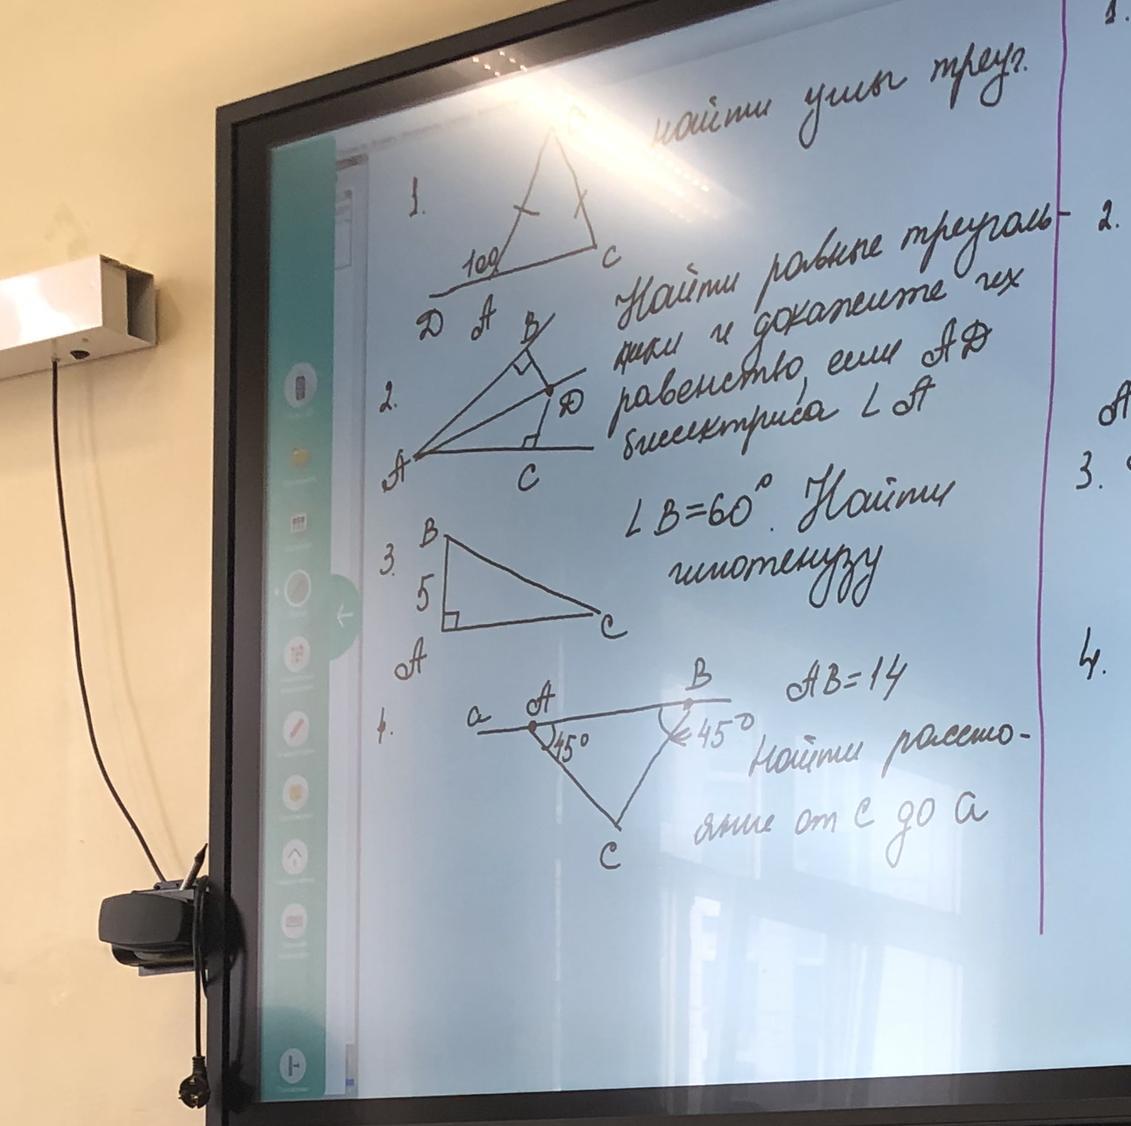 найти углы треуг.
1.
100
C
D A
2.
Найти равные треуголь-
ники и докажите их
равенство, если AD
биссектриса ∠A
B
D
A
C
3.
∠B=60°. Найти
гипотенузу
B
5
A
C
4.
a A B
AB=14
45° 45°
Найти рассто-
яние от C до a
C
1.
2.
A
3.
4.